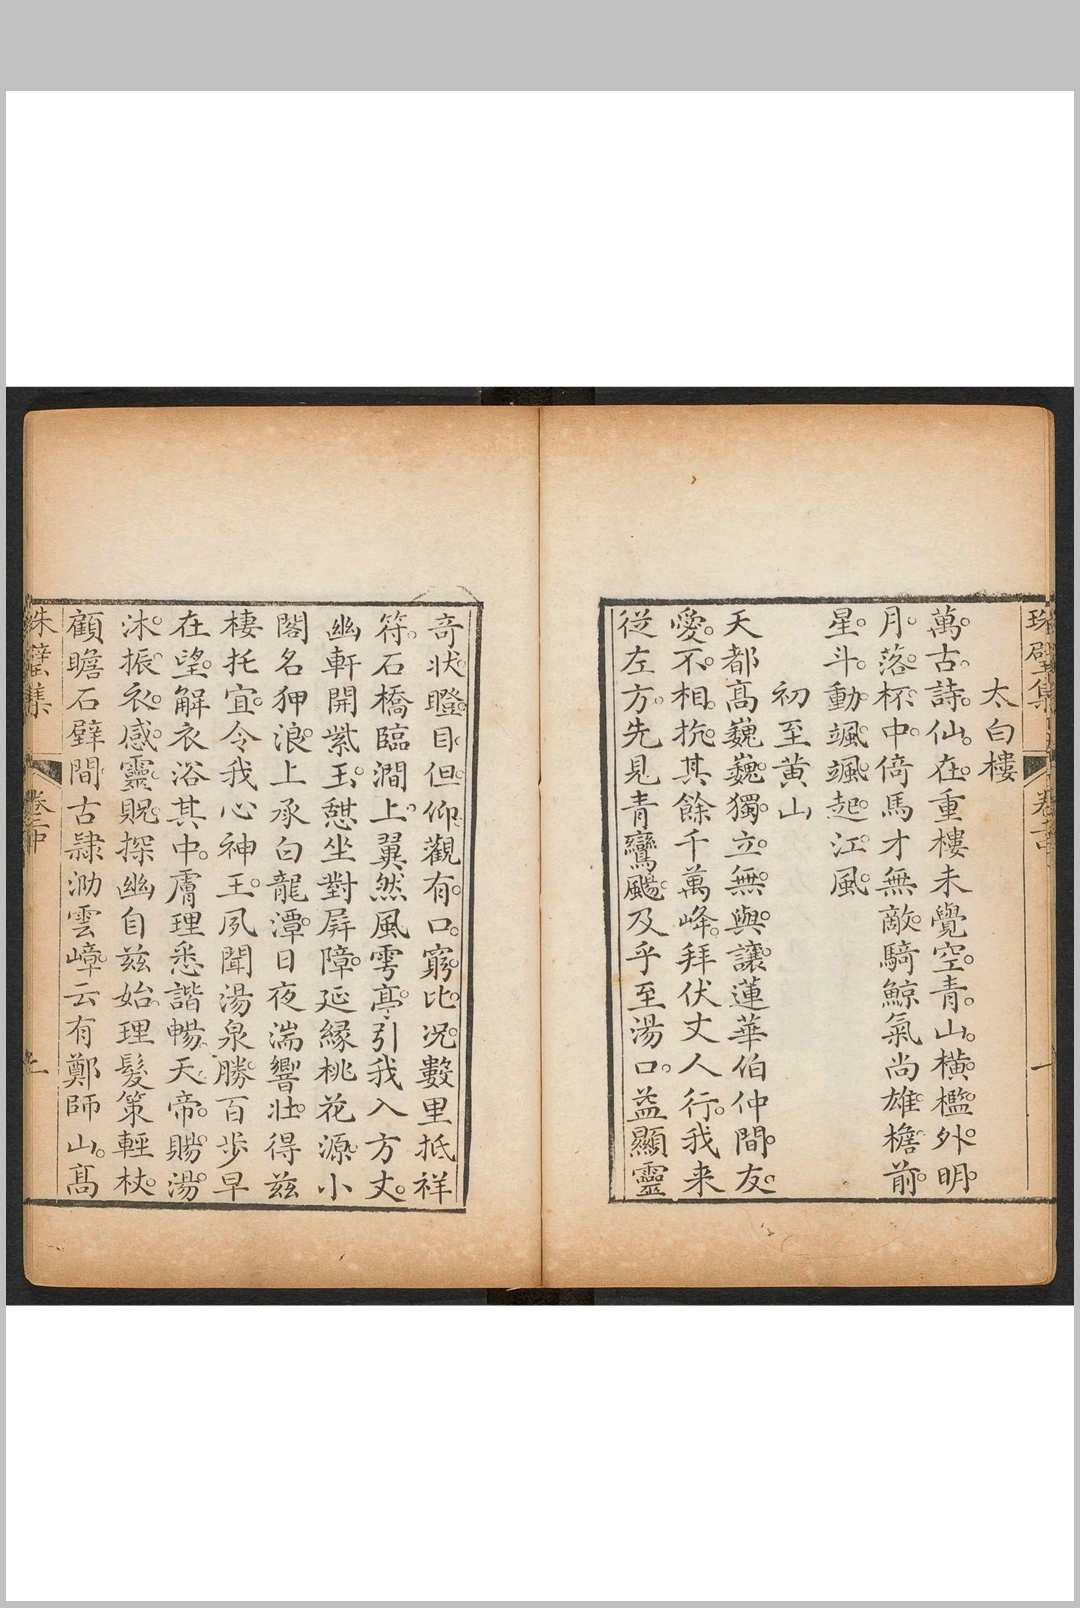 太白樓
萬古詩仙在重樓未覺空青山橫檻外明
月落杯中倚馬才無敵騎鯨氣尚雄檐前
星斗動颯颯起江風
初至黄山
天都高巍巍獨立無與讓蓮華伯仲間友
愛不相抗其餘千萬峰拜伏丈人行我来
従左方先見青鸞颺及乎至湯口益顯靈
奇状瞪目但仰觀有口窮比况數里抵祥
符石橋臨澗上翼然風雩亭引我入方丈
幽軒開紫玉憇坐對屏障延緣桃花源小
閣名狎浪上承白龍潭日夜湍響壮得兹
棲托宜令我心神王夙聞湯泉勝百歩早
在望解衣浴其中膚理悉諧暢天帝賜湯
沐振衣感靈貺探幽自兹始理髮策輕杖
顧瞻石壁間古隷泐雲嶂云有鄭師山高
集
卷二中